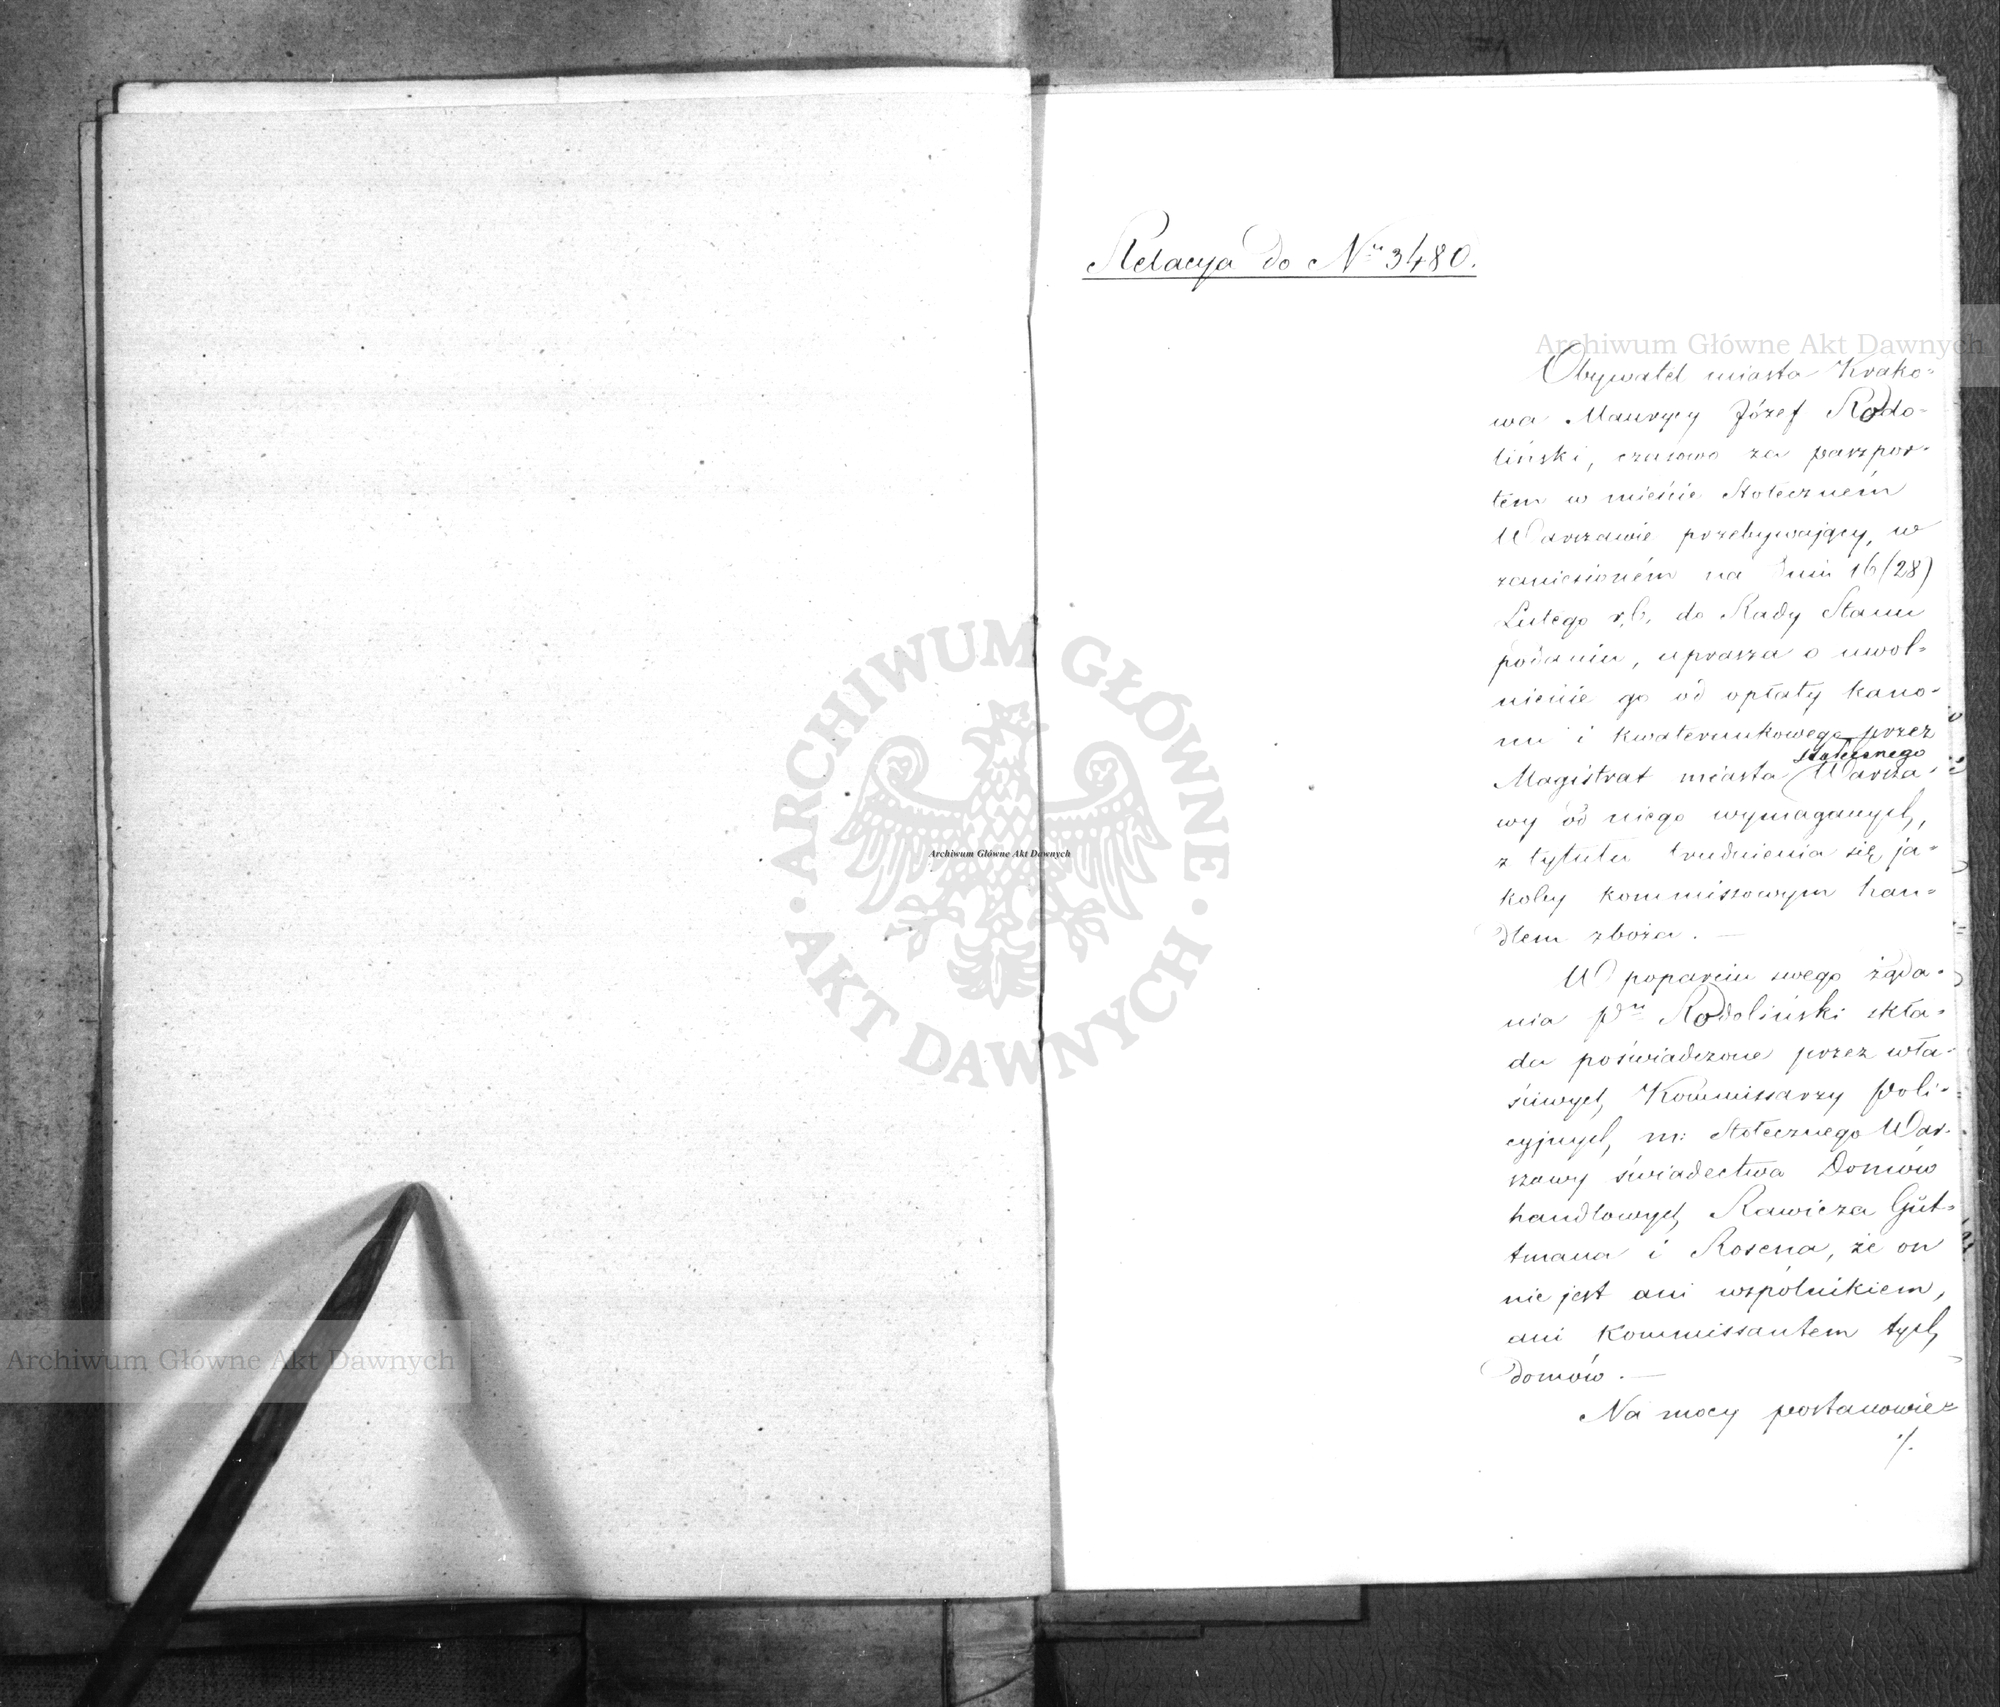 Relacya do Nru 3480.
Obywatel miasta Krako-
wa Maurycy Józef Rodo-
liński, czasowo za paszpor-
tem w mieście Stołeczném
Warszawie przebywający, w
zaniesioném na dniu 16/28)
Lutego r. b. do Rady Stanu
podaniu, uprasza o uwol-
nienie go od opłaty kano-
nu i kwaterunkowego przez
stołecznego
Magistrat miasta Warsza-
wy od niego wymaganych,
z tytułu trudnienia się, ja-
koby kommissowym han-
dlem zboża. —
W poparciu swego żąda-
nia Pn Rodoliński skła-
da poświadczone przez wła-
ściwych Kommissarzy Poli-
cyjnych m: Stołecznego War-
szawy świadectwa Domów
handlowych Rawicza Gut-
tmana i Rosena, że on
nie jest ani wspólnikiem,
ani Kommissantem tych
domów. —
Na mocy postanowie-
./.
Archiwum Główne Akt Dawnych
Archiwum Główne Akt Dawnych
Archiwum Główne Akt Dawnych
ARCHIWUM GŁÓWNE
AKT DAWNYCH